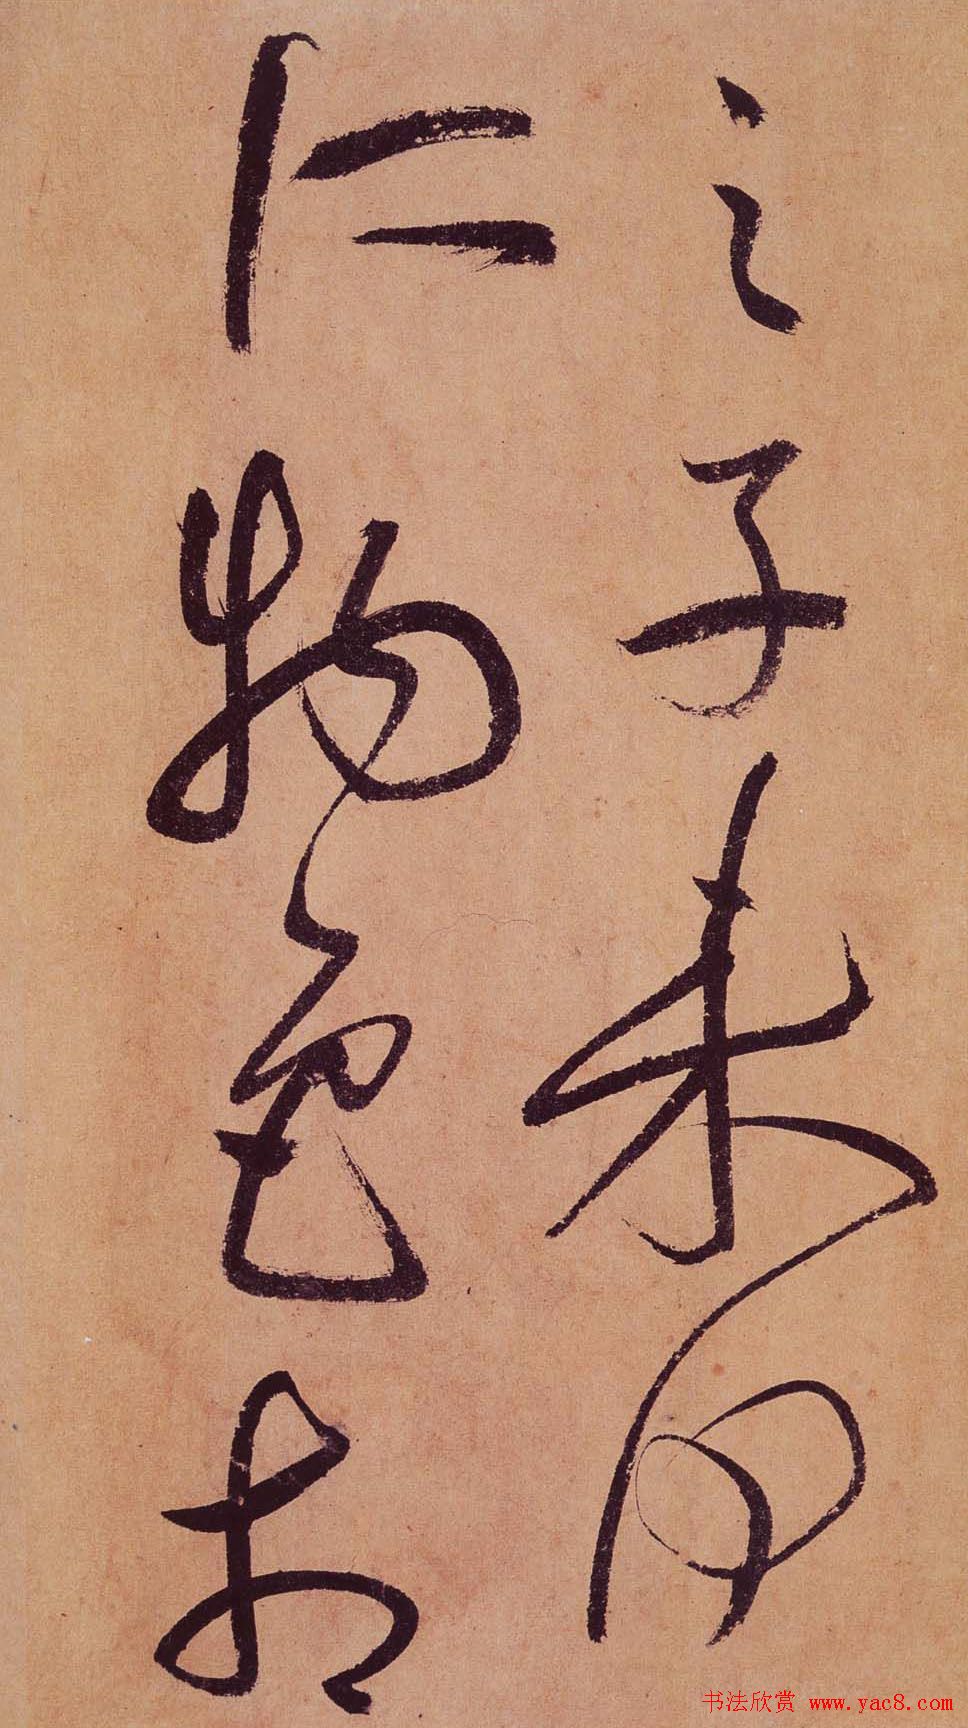 之子未
仁物色相
书法欣赏 www.yac8.com